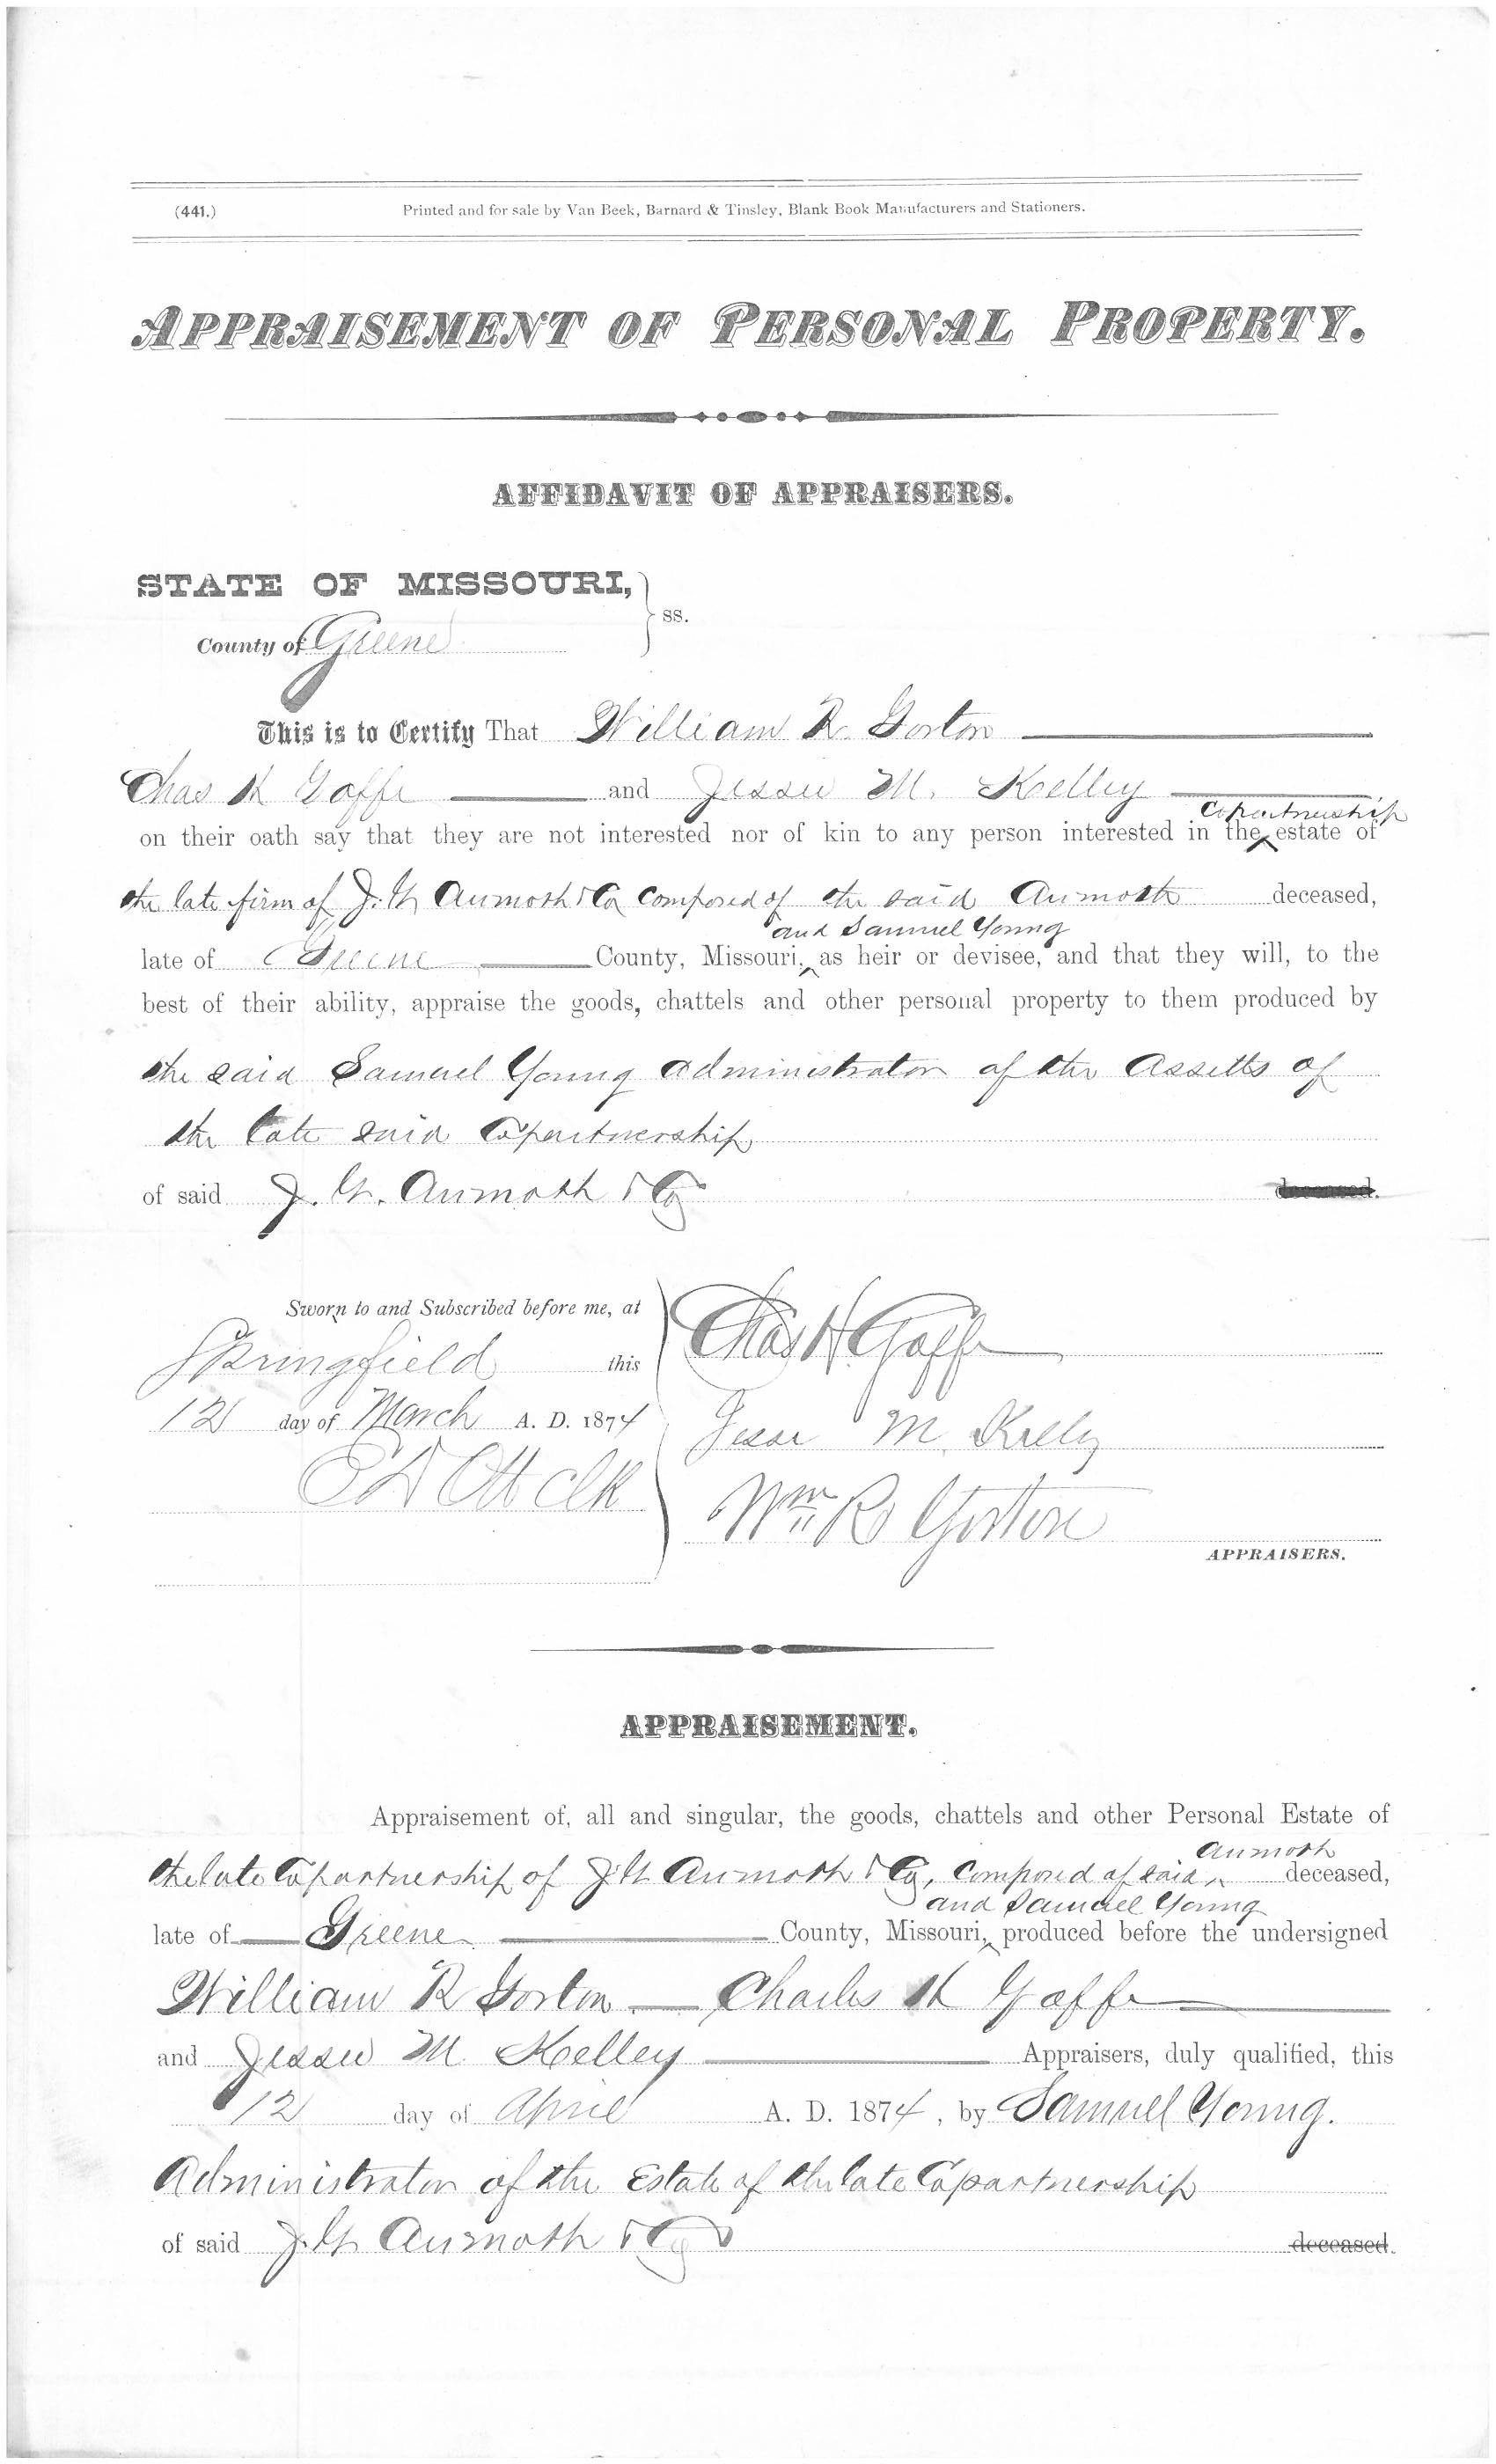 (441.) Printed and for sale by Van Beek, Barnard & Tinsley, Blank Book Manufacturers and Stationers.
APPRAISEMENT OF PERSONAL PROPERTY.
AFFIDAVIT OF APPRAISERS.
STATE OF MISSOURI,
ss.
County of Greene
This is to Certify That William R. Gorton
Chas H Goffe and Jessee M. Kelley
Copartnership
on their oath say that they are not interested nor of kin to any person interested in the estate of
the late firm of J. H. Aumoth & Co composed of the said Aumoth deceased,
and Samuel Young
late of Greene County, Missouri, as heir or devisee, and that they will, to the
best of their ability, appraise the goods, chattels and other personal property to them produced by
the said Samuel Young Administrator of the Assetts of
the late said Copartnership
of said J. H. Aumoth & Co deceased.
Sworn to and Subscribed before me, at
Chas H. Goffe
Springfield this
12 day of March A. D. 1874
Jesse M. Kelly
E D Ott Clk
Wm R Gorton
APPRAISERS.
APPRAISEMENT.
Appraisement of, all and singular, the goods, chattels and other Personal Estate of
Aumoth
the late Copartnership of J H Aumoth & Co, Composed of said deceased,
and Samuel Young
late of Greene County, Missouri, produced before the undersigned
William R Gorton Charles H Goffe
and Jessee M. Kelley Appraisers, duly qualified, this
12 day of April A. D. 1874, by Samuel Young.
Administrator of the Estate of the late Copartnership
of said J. H. Aumoth & Co deceased.